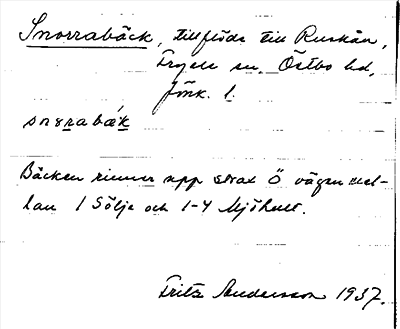 Snorrabäck, tillflöde till Ruskån,
Fryele sn. Östbo hd,
Jönk. l.
snɤrabäk
Bäcken rinner upp strax Ö vägen mel-
lan 1 Sölje och 1-4 Mjöhult.
Fritz Andersson 1937.